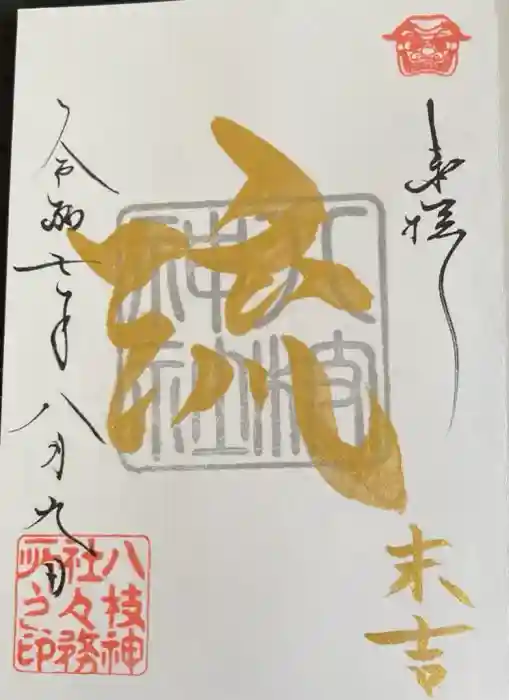 奉拝
流
八枝
神社
末吉
令和七年八月九日
八枝神
社々務
所之印